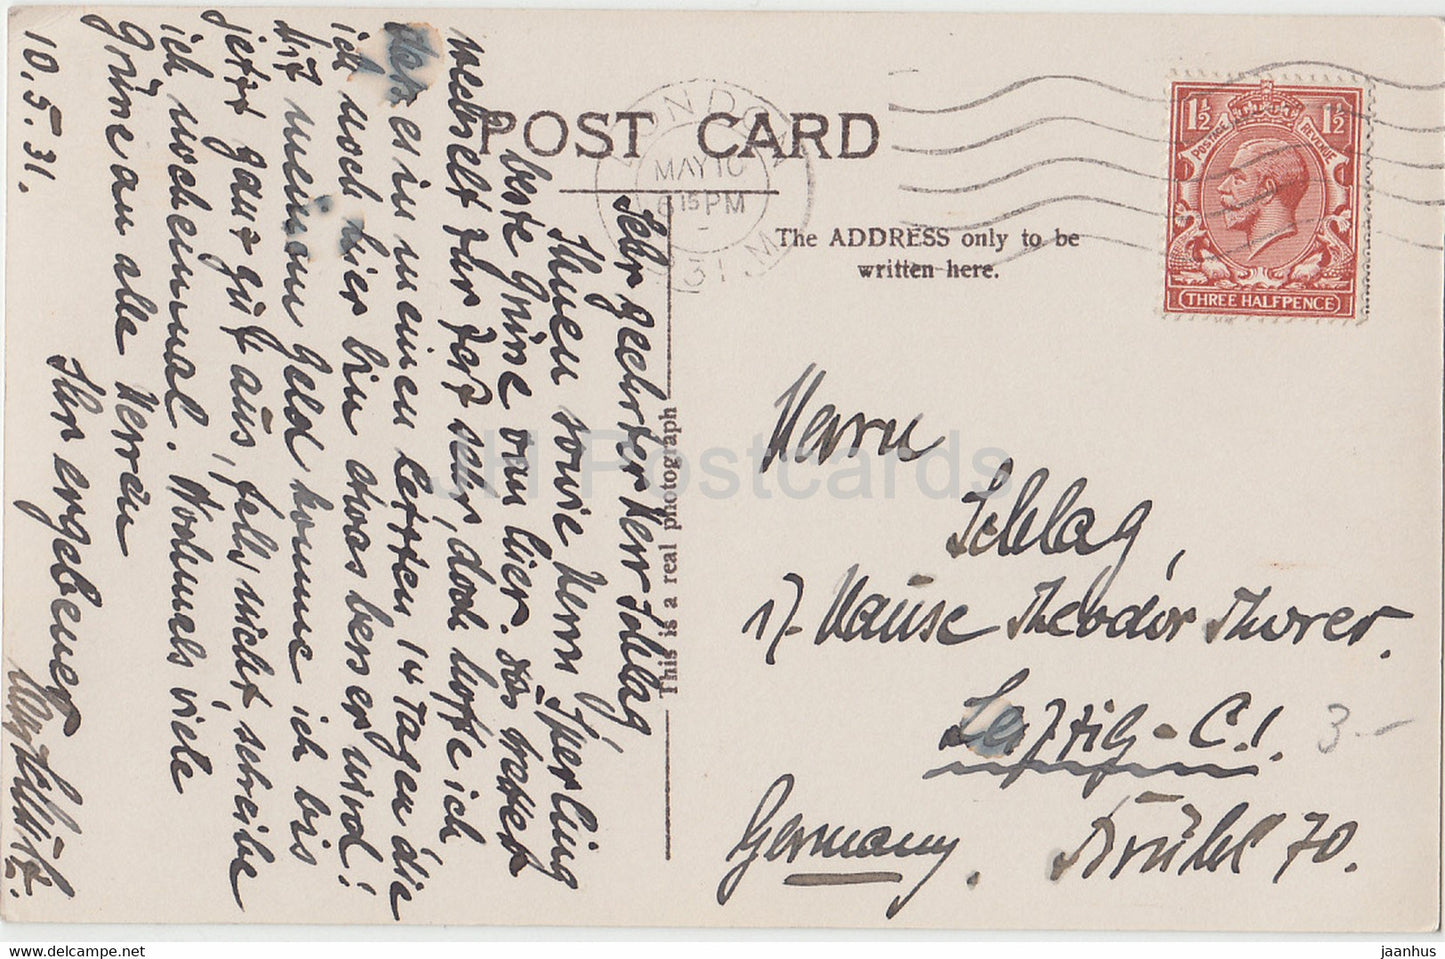 POST CARD
LONDON
MAY 10
6 15 PM
31
The ADDRESS only to be
written here.
1½ 1½
POSTAGE REVENUE
THREE HALFPENCE
This is a real photograph
JH Postcards
Sehr geehrter Herr Schlag,
Ihnen sowie Herrn Sperling
beste Grüsse von hier. Das Wetter
wechselt zur Zeit sehr, doch hoffe ich
dass es in meinen letzten 14 Tagen die
ich noch hier bin etwas besser wird!
Mit meinem Geld komme ich bis
jetzt ganz gut aus, falls nicht, schreibe
ich nocheinmal. Nochmals viele
Grüsse an alle Herren
Ihr ergebener
10.5.31.
Herrn
Schlag,
i/. Hause Theodor Thorer.
Leipzig-C.1.
Germany.
Brühl 70.
3.-
jh-postcards.com
jaanhus